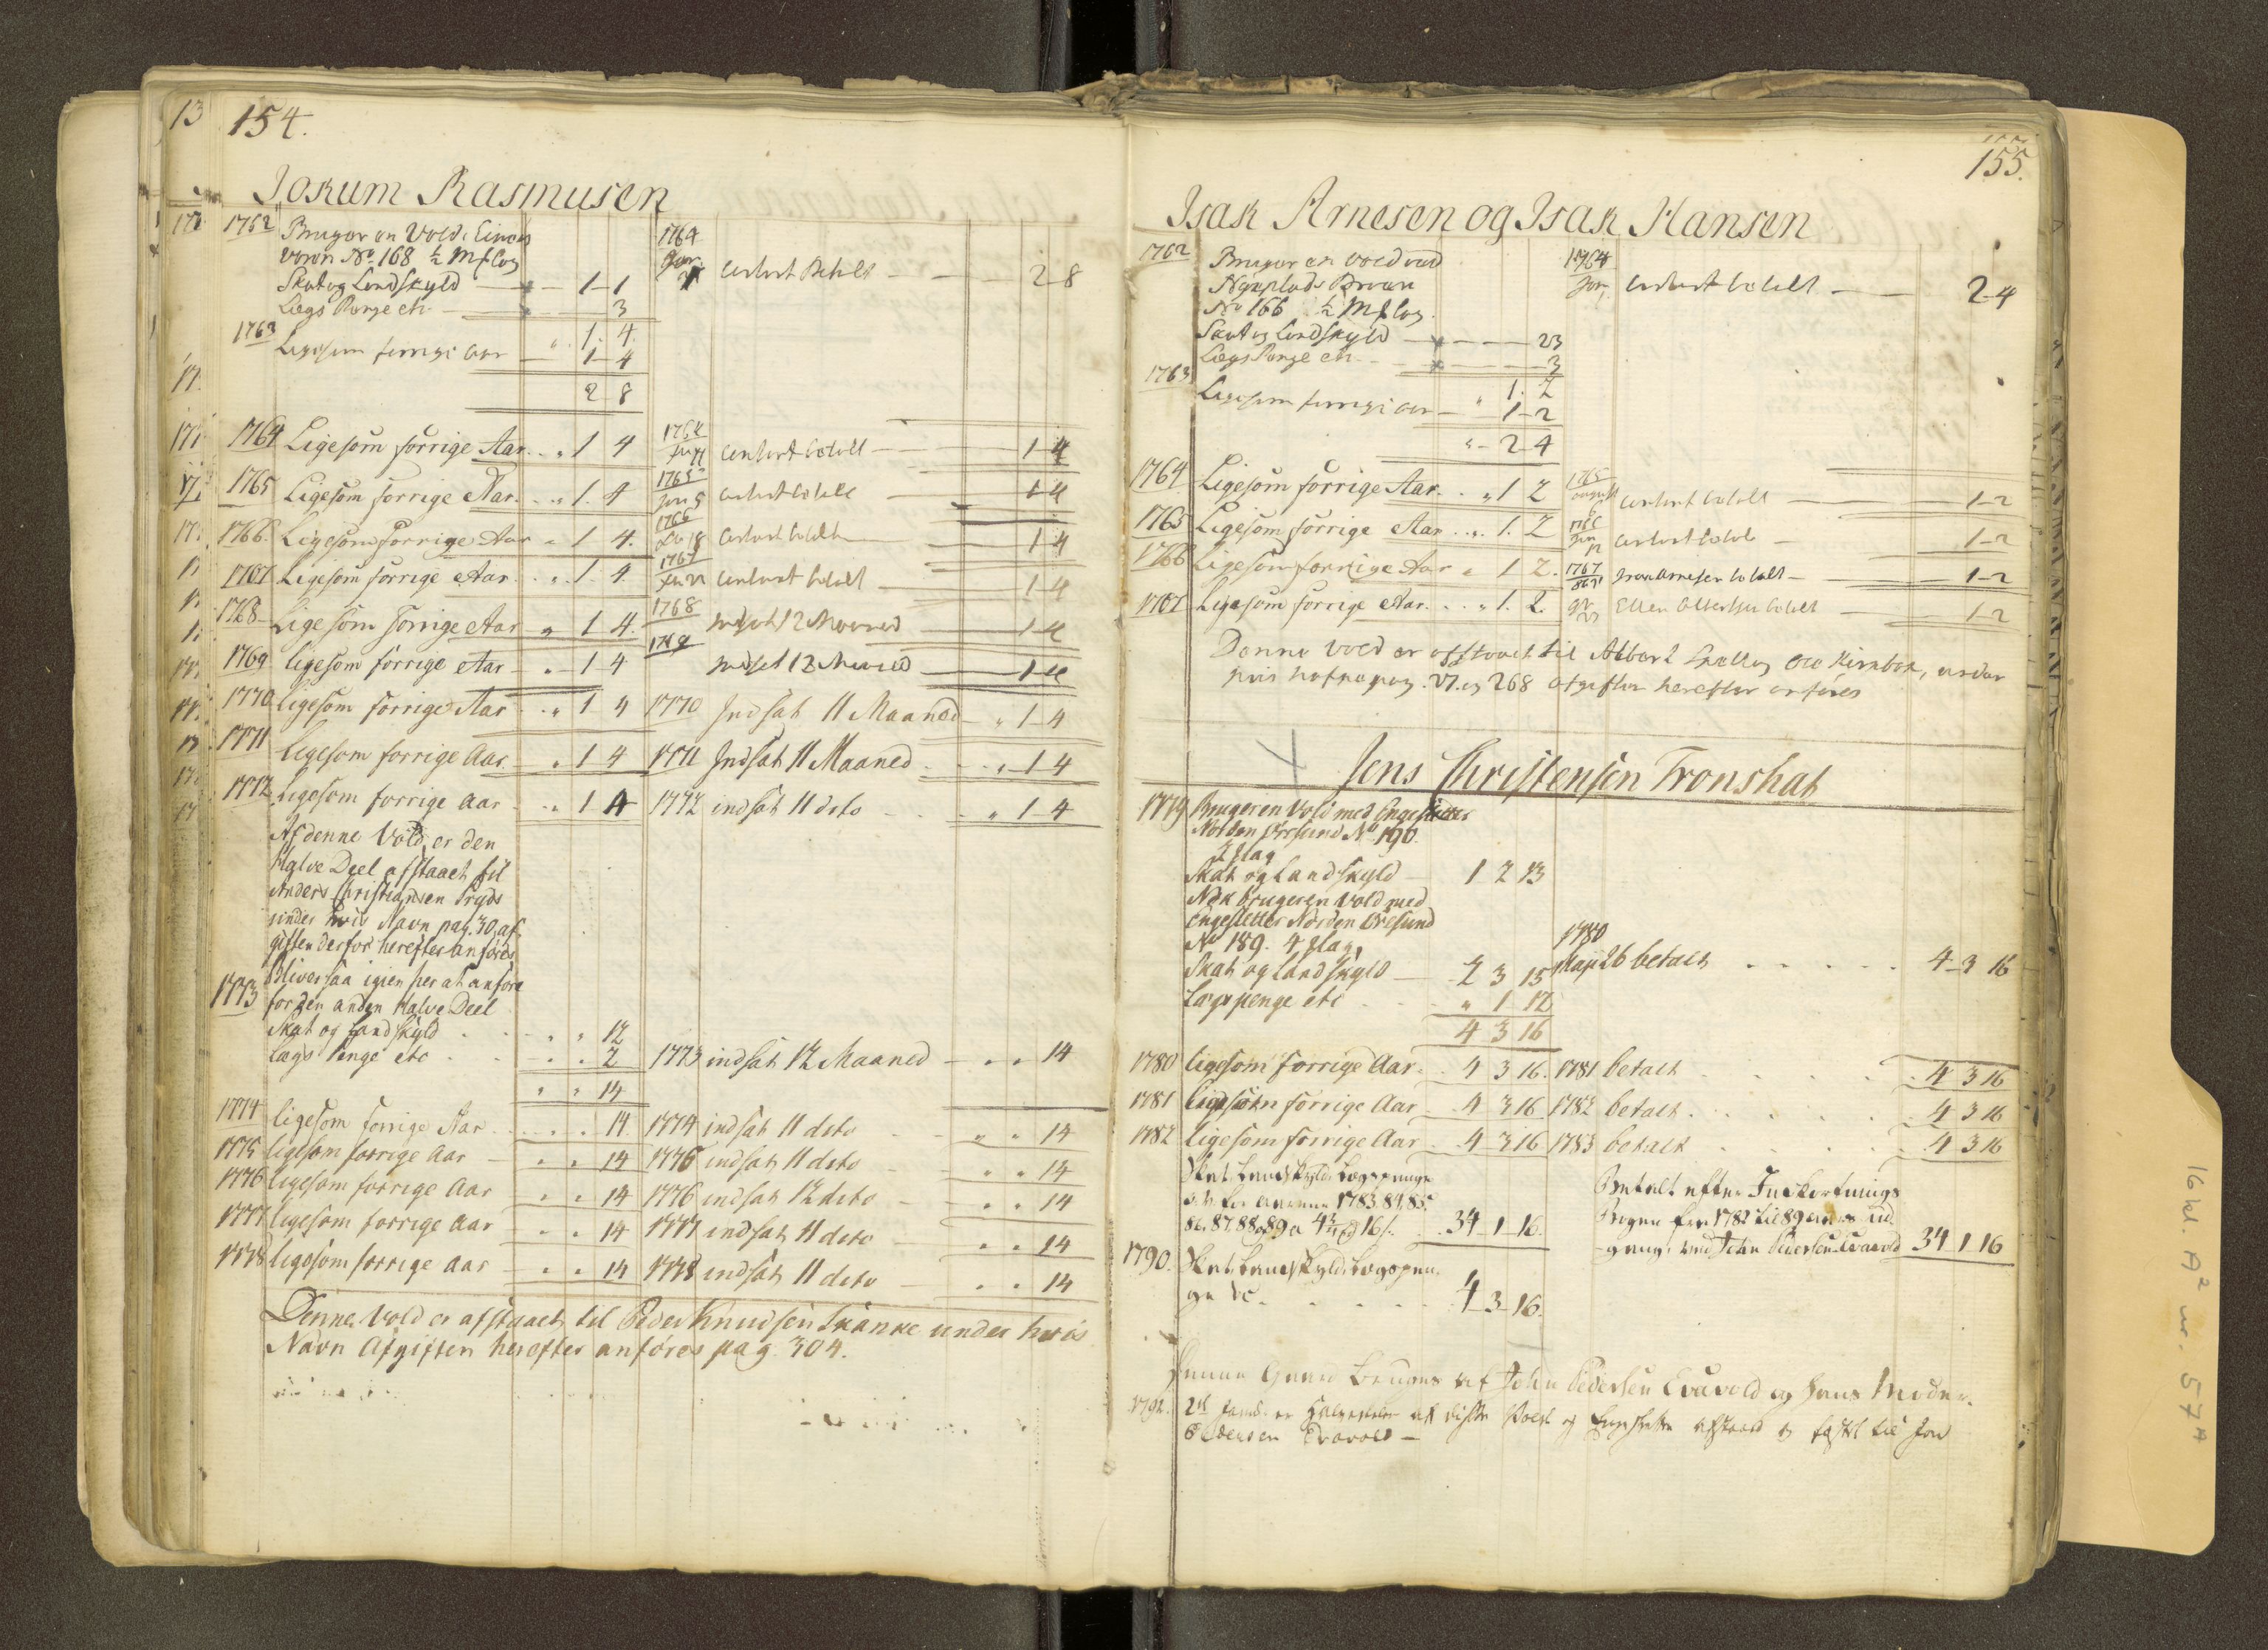 13
154.
Jokum Rasmusen
1762 Bruger en Vold i
No 168 ½ Mæl
Skat og Landskyld 1 1
Lægs Penge etc 3
" 1. 4.
1763 Ligesom forrige aar 1 4
2 8
1764 Jan: contant Betalt 2 8
1764 Ligesom forrige Aar. . " 1 4
contant betalt 1 4
1765 Ligesom forrige Aar. . " 1. 4
1765 contant betalt 1 4
1766. Ligesom forrige Aar " 1 4.
1766 contant betalt 1 4
1767 Ligesom forrige Aar. . " 1. 4.
1767 contant betalt 1 4
1768 Ligesom forrige Aar " 1 4.
1768 indsat 12 Maaned 1 4
1769 ligesom forrige Aar " 1 4
1769 indsat 12 Maaned 1 4
1770 ligesom forrige Aar . " 1 4
1770 Indsat 11 Maaned " 1 4
1771 ligesom forrige Aar . " 1 4
1771 Indsat 11 Maaned . " 1 4
1772 ligesom forrige aar . " 1 4
1772 indsat 11 dito . . " 1 4
Af denne Vold er den
Halve Deel afstaaet til
Anders Christiansen Tryds
under hvis Navn pag. 30, af-
giften derfor herefter anføres
1773 Bliver saa igien her at anføre
for den anden Halve Deel
Skat og Landskyld . . " " 12
Lægs Penge etc . . " " 2
" " 14
1773 indsat 12 Maaned " " 14
1774 ligesom forrige Aar . . " " 14
1774 indsat 11 dito " " 14
1775 ligesom forrige Aar " " 14
1775 indsat 11 dito " " 14
1776 ligesom forrige Aar " " 14
1776 indsat 12 dito " " 14
1777 ligesom forrige Aar " " 14
1777 indsat 11 dito " " 14
1778 ligesom forrige Aar " " 14
1778 indsat 11 dito " " 14
Denne Vold er afstaaet til Peder Knudsen Skanke under hvis
Navn Afgiften herefter anføres pag. 304.
155.
Isak Arnesen og Isak Hansen
1762 Bruger en Vold ved
Nyeplads
No 166 ½ Mæl
Skat og Landskyld 23
Lægs Penge etc. 3
" 1. 2
1763 Ligesom forrige aar " 1 2
" 2 4
1764 Jan, contant betalt 2 4
1764 Ligesom forrige Aar. . " 1 2
1765 august 6 contant betalt 1 2
1765 Ligesom forrige Aar . . " 1. 2
1766 Jan 12 contant betalt 1 2
1766 Ligesom forrige Aar " 1 2.
1767 Isac Arnesen betalt 1 2
1767 Ligesom forrige Aar. . . " 1. 2.
betalt 1 2
Denne Vold er afstaaet til Albert og Ole, under
hvis Nafn pag. 27. og 268 afgiften herefter anføres
Jens Christensen Tronshat
1779 Bruger en Vold med Engesletter
Norden Øresund No 190.
2 Mæl
Skat og Landskyld 1 2 13
Nok bruger en Vold med
Engesletter Norden Øresund
No 189. 4 Mæl,
Skat og Landskyld 2 3 15
Lægspenge etc " 1 12
4 3 16
1780
Maji 26 betalt . . . . . 4 3 16
1780 ligesom forrige Aar. . 4 3 16.
1781 betalt . . . . 4 3 16
1781 ligesom forrige Aar 4 3 16
1782 betalt . . . . . 4 3 16
1782 ligesom forrige Aar . 4 3 16
1783 betalt . . . . . 4 3 16
Skat, Landskyld, Lægspenge
for aarene 1783. 84, 85,
86, 87, 88, 89 a 16 s. 34 1 16.
Betalt efter
Bogen fra 1782 til 89
John Pedersen Evavold 34 1 16
1790. Skat, Landskyld, Lægspen-
ge &c. . . . . . 4 3 16.
Denne Gaard bruges af John Pedersen Evavold og hans Moder.
1792. af disse Vold og Engesletter afstaaet og fæstet til Jon
Pedersen Evavold
16 kl. A² nr. 57ᴬ